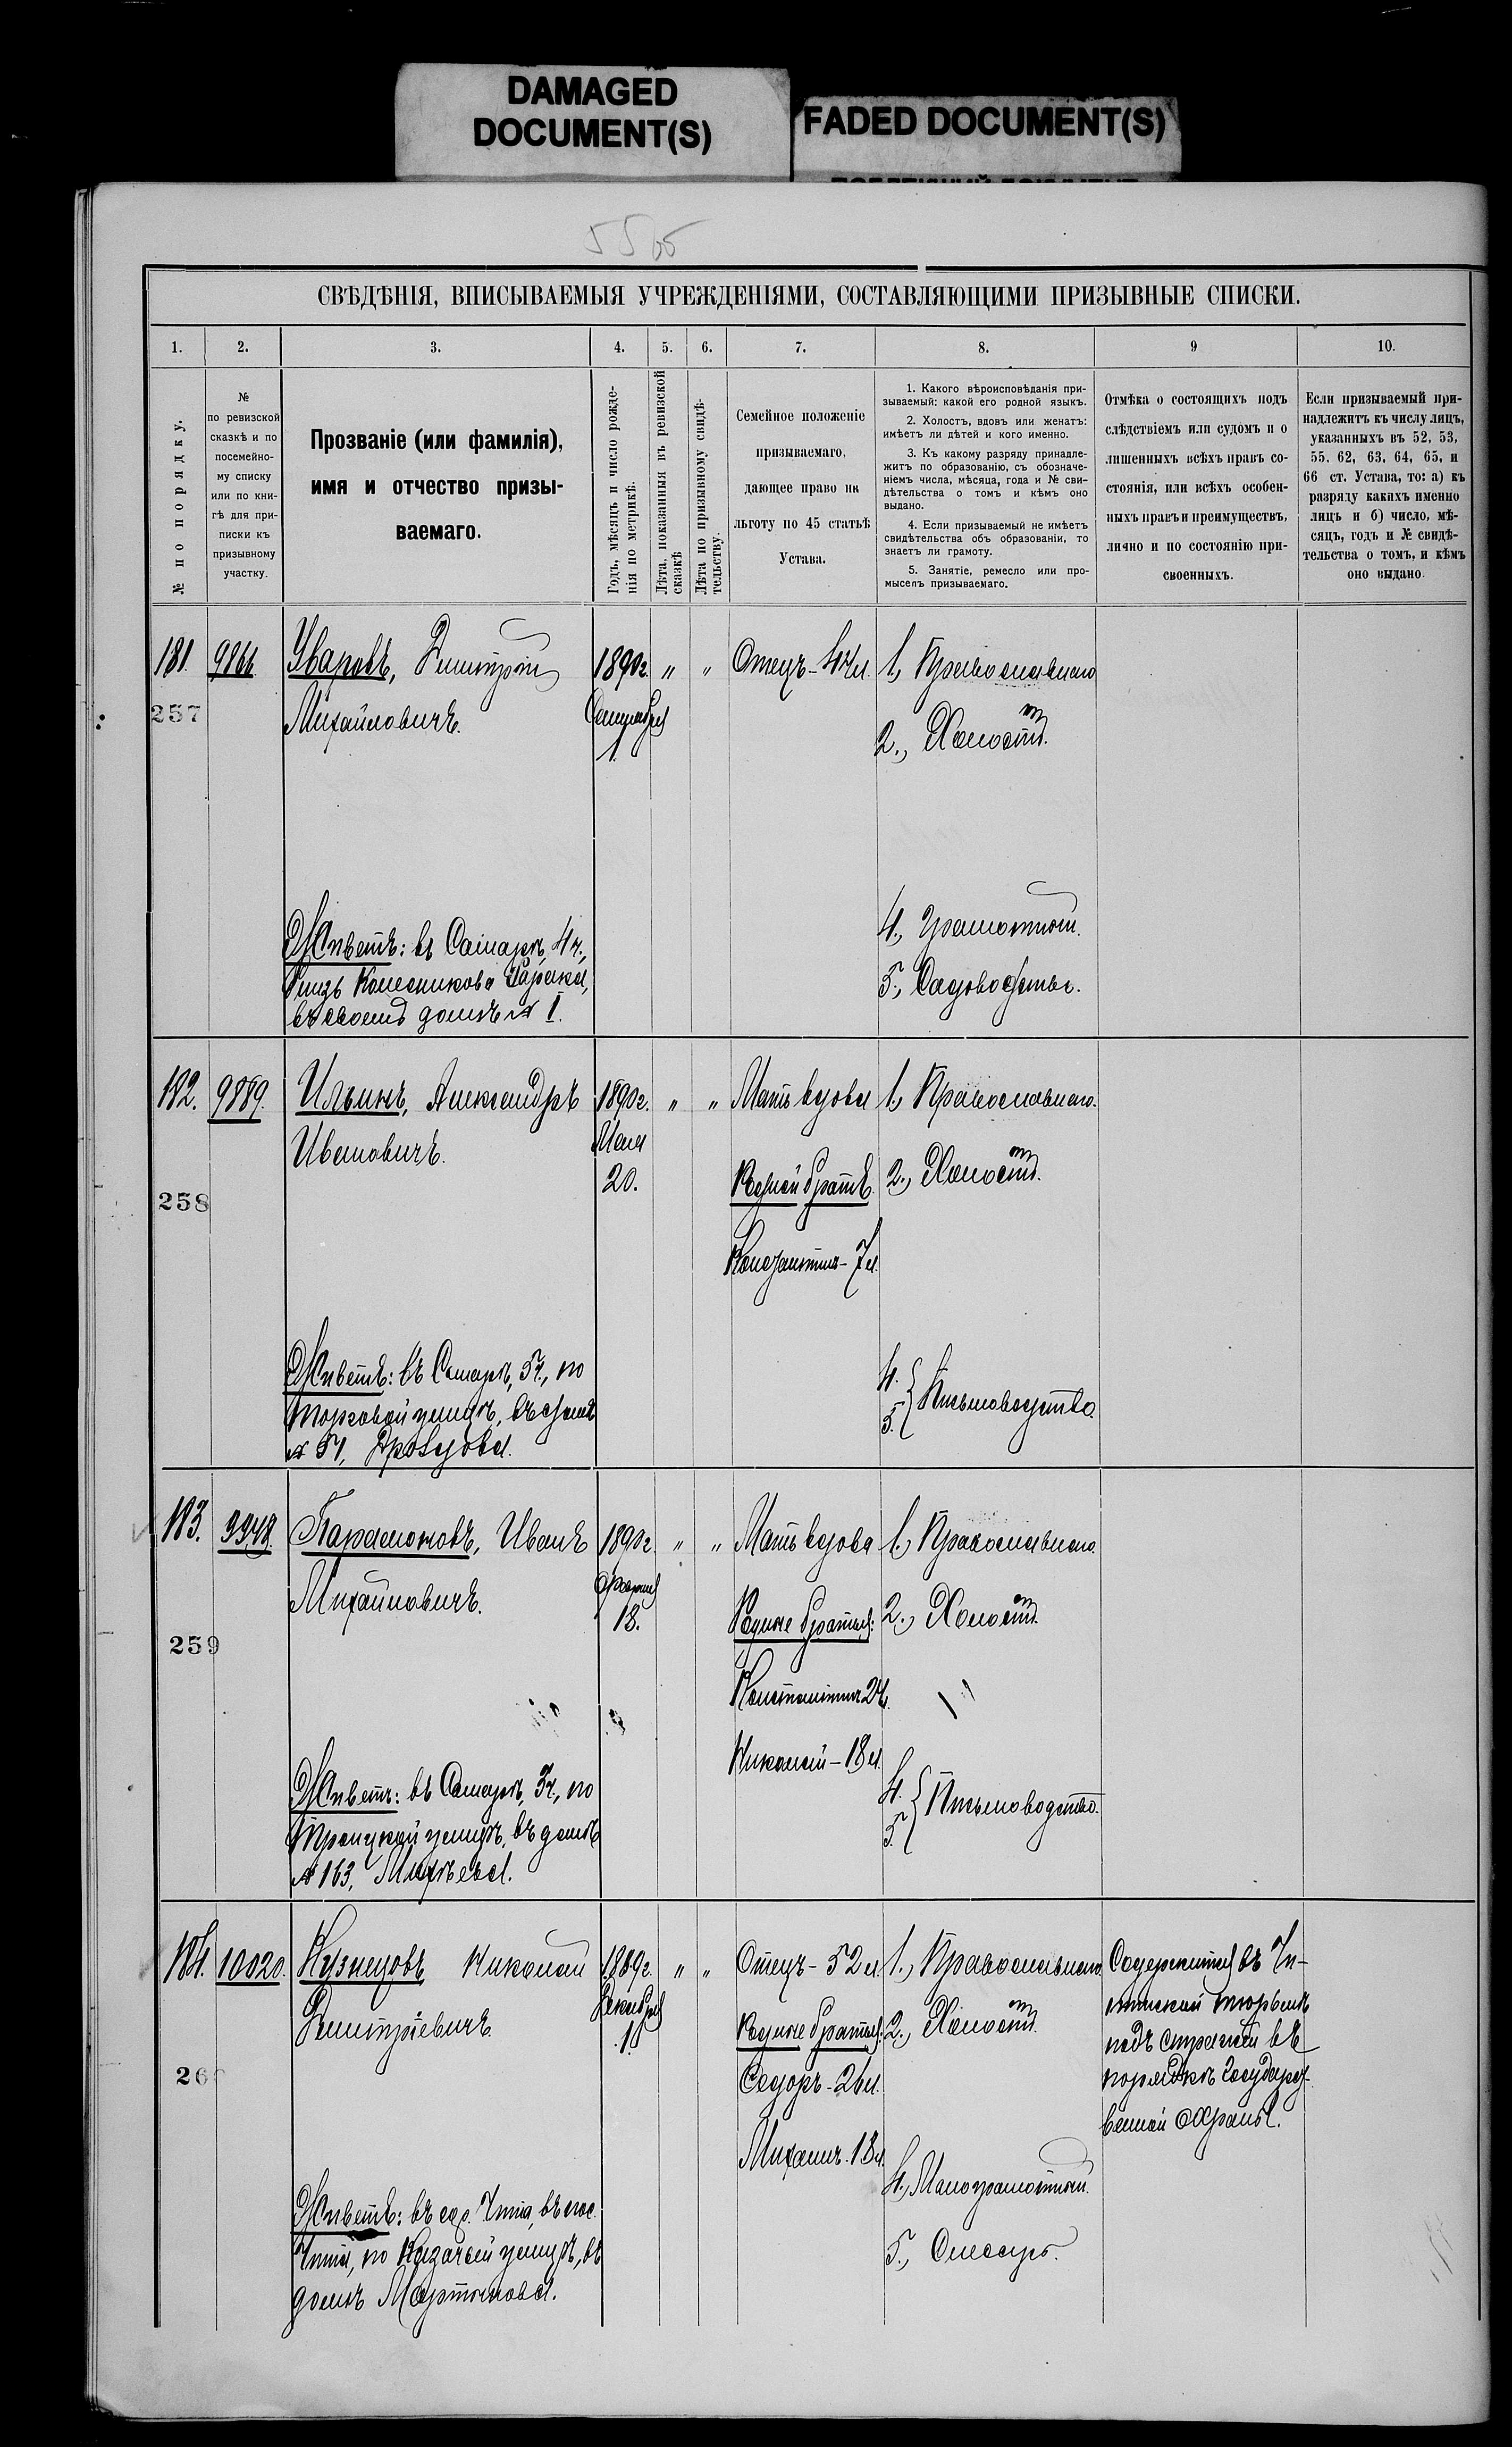 DAMAGED
DOCUMENT(S)
FADED DOCUMENT(S)
СВѢДѢНІЯ, ВПИСЫВАЕМЫЯ УЧРЕЖДЕНІЯМИ, СОСТАВЛЯЮЩИМИ ПРИЗЫВНЫЕ СПИСКИ.
1. 2. 3. 4. 5. 6. 7. 8. 9 10.
№ по порядку.
№
по ревизской
сказкѣ и по
посемейно-
му списку
или по кни-
гѣ для при-
писки къ
призывному
участку.
Прозваніе (или фамилія),
имя и отчество призы-
ваемаго.
Годъ, мѣсяцъ и число рожде-
нія по метрикѣ.
Лѣта, показанныя въ ревизской
сказкѣ
Лѣта по призывному свидѣ-
тельству.
Семейное положеніе
призываемаго,
дающее право на
льготу по 45 статьѣ
Устава.
1. Какого вѣроисповѣданія при-
зываемый: какой его родной языкъ.
2. Холостъ, вдовъ или женатъ:
имѣетъ ли дѣтей и кого именно.
3. Къ какому разряду принадле-
житъ по образованію, съ обозначе-
ніемъ числа, мѣсяца, года и № сви-
дѣтельства о томъ и кѣмъ оно
выдано.
4. Если призываемый не имѣетъ
свидѣтельства объ образованіи, то
знаетъ ли грамоту.
5. Занятіе, ремесло или про-
мыселъ призываемаго.
Отмѣка о состоящихъ подъ
слѣдствіемъ или судомъ и о
лишенныхъ всѣхъ правъ со-
стоянія, или всѣхъ особен-
ныхъ правъ и преимуществъ,
лично и по состоянію при-
своенныхъ.
Если призываемый при-
надлежитъ къ числу лицъ,
указанныхъ въ 52, 53,
55, 62, 63, 64, 65, и
66 ст. Устава, то: а) къ
разряду какихъ именно
лицъ и б) число, мѣ-
сяцъ, годъ и № свидѣ-
тельства о томъ, и кѣмъ
оно выдано.
181. 9866. Уваровъ, Дмитрій
Михайловичъ.
257
1890г.
Сентября
1.
" "
Отецъ-
1., Православнаго
2., Холостъ.
4., Грамотный.
5., Садоводство.
Живетъ: въ Самарѣ, 4ч.,
близъ Колесникова
въ своемъ домѣ № 1.
182. 9889. Ильинъ, Александръ
Ивановичъ.
258
1890г.
Мая
20.
" "
Мать вдова
Родной братъ
Константинъ-7л.
1., Православнаго.
2., Холостъ.
4.
5. Письмоводство.
Живетъ: въ Самарѣ, 5ч., по
Торговой улицѣ, въ домѣ
№ 51,
183. 9948. Парамоновъ, Иванъ
Михайловичъ.
259
1890г.
Февраля
18.
" "
Мать вдова
Родные братья:
Константинъ 24.
Николай-18л.
1., Православнаго.
2., Холостъ.
4.
5. Письмоводство.
Живетъ: въ Самарѣ, 3ч., по
Троицкой улицѣ, въ домѣ
№ 163, Михѣева.
184. 10020. Кузнецовъ Николай
Дмитріевичъ.
260
1889г.
Декабря
1.
" "
Отецъ-52л.
Родные братья:
Ѳедоръ-26л.
Михаилъ.18л.
1., Православнаго
2., Холостъ.
4., Малограмотный.
5., Слесарь.
Содержится въ Чи-
тинской тюрьмѣ
подъ стражей въ
порядкѣ государст-
венной охраны.
Живетъ: въ гор. Читѣ, въ пос.
Чита, по Казачьей улицѣ, въ
домѣ Мартынова.